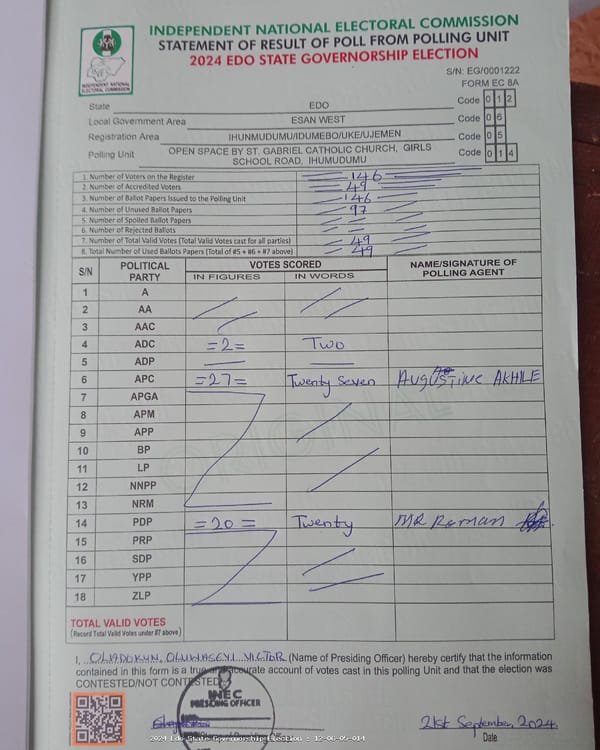 INDEPENDENT NATIONAL ELECTORAL COMMISSION
STATEMENT OF RESULT OF POLL FROM POLLING UNIT
2024 EDO STATE GOVERNORSHIP ELECTION
INEC
INDEPENDENT NATIONAL ELECTORAL COMMISSION
S/N: EG/0001222
FORM EC 8A
State EDO Code 0 1 2
Local Government Area ESAN WEST Code 0 6
Registration Area IHUNMUDUMU/IDUMEBO/UKE/UJEMEN Code 0 5
Polling Unit OPEN SPACE BY ST. GABRIEL CATHOLIC CHURCH, GIRLS SCHOOL ROAD, IHUMUDUMU Code 0 1 4
1. Number of Voters on the Register 146
2. Number of Accredited Voters 49
3. Number of Ballot Papers Issued to the Polling Unit 146
4. Number of Unused Ballot Papers 97
5. Number of Spoiled Ballot Papers
6. Number of Rejected Ballots
7. Number of Total Valid Votes (Total Valid Votes cast for all parties) 49
8. Total Number of Used Ballots Papers (Total of #5 + #6 + #7 above) 49
S/N POLITICAL PARTY VOTES SCORED NAME/SIGNATURE OF POLLING AGENT
IN FIGURES IN WORDS
1 A
2 AA
3 AAC
4 ADC =2= Two
5 ADP
6 APC =27= Twenty Seven AUGUSTINE AKHILE
7 APGA
8 APM
9 APP
10 BP
11 LP
12 NNPP
13 NRM
14 PDP =20= Twenty MR Roman
15 PRP
16 SDP
17 YPP
18 ZLP
TOTAL VALID VOTES
(Record Total Valid Votes under #7 above)
I, OLADOKUN, OLUWASEYI VICTOR (Name of Presiding Officer) hereby certify that the information
contained in this form is a true and accurate account of votes cast in this polling Unit and that the election was
CONTESTED/NOT CONTESTED
INEC
PRESIDING OFFICER
21st September, 2024
Date
2024 Edo State Governorship Election : 12-06-05-014